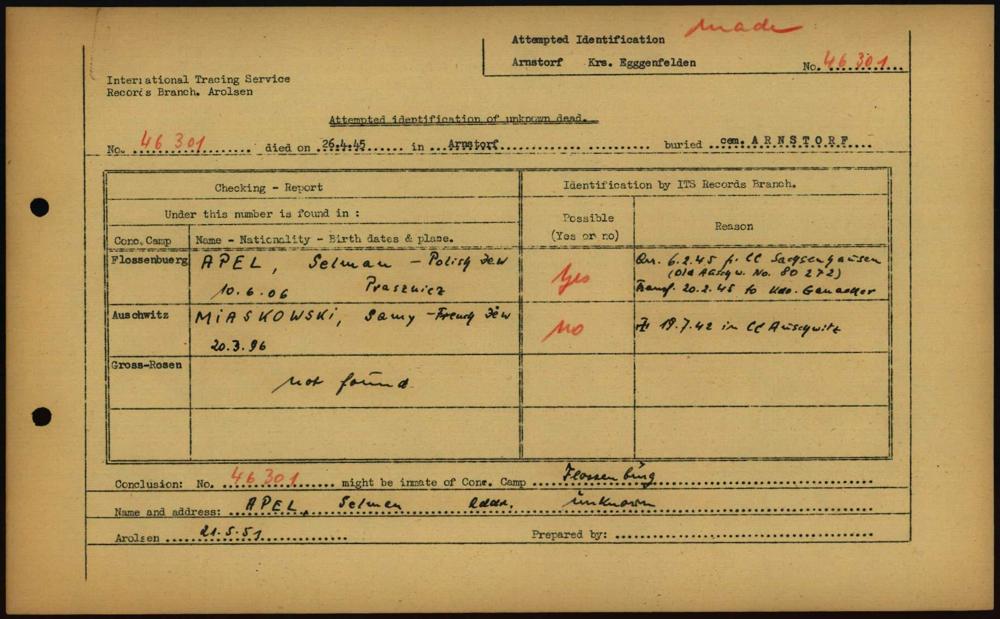 made
Attempted Identification
Arnstorf Krs. Egggenfelden
No. 46 301
International Tracing Service
Records Branch. Arolsen
Attempted identification of unknown dead.
No. 46 301 died on 26.4.45 in Arnstorf buried cem. ARNSTORF
Checking - Report
Identification by ITS Records Branch.
Under this number is found in :
Possible
(Yes or no)
Reason
Conc. Camp
Name - Nationality - Birth dates & place.
Flossenbuerg
APEL, Selman - Polish Jew
10.6.06 Prasznicz
Yes
Arr. 6.2.45 fr. CC Sachsenhausen
(Old Auschw. No. 80 272)
Transf. 20.2.45 to Kdo. Ganacker
Auschwitz
MIASKOWSKI, Samy - French Jew
20.3.96
no
19.7.42 in CC Auschwitz
Gross-Rosen
not found
Conclusion: No. 46.301 might be inmate of Conc. Camp Flossenbürg
Name and address: APEL, Selman Addr. unknown
Arolsen 21.5.51 Prepared by: